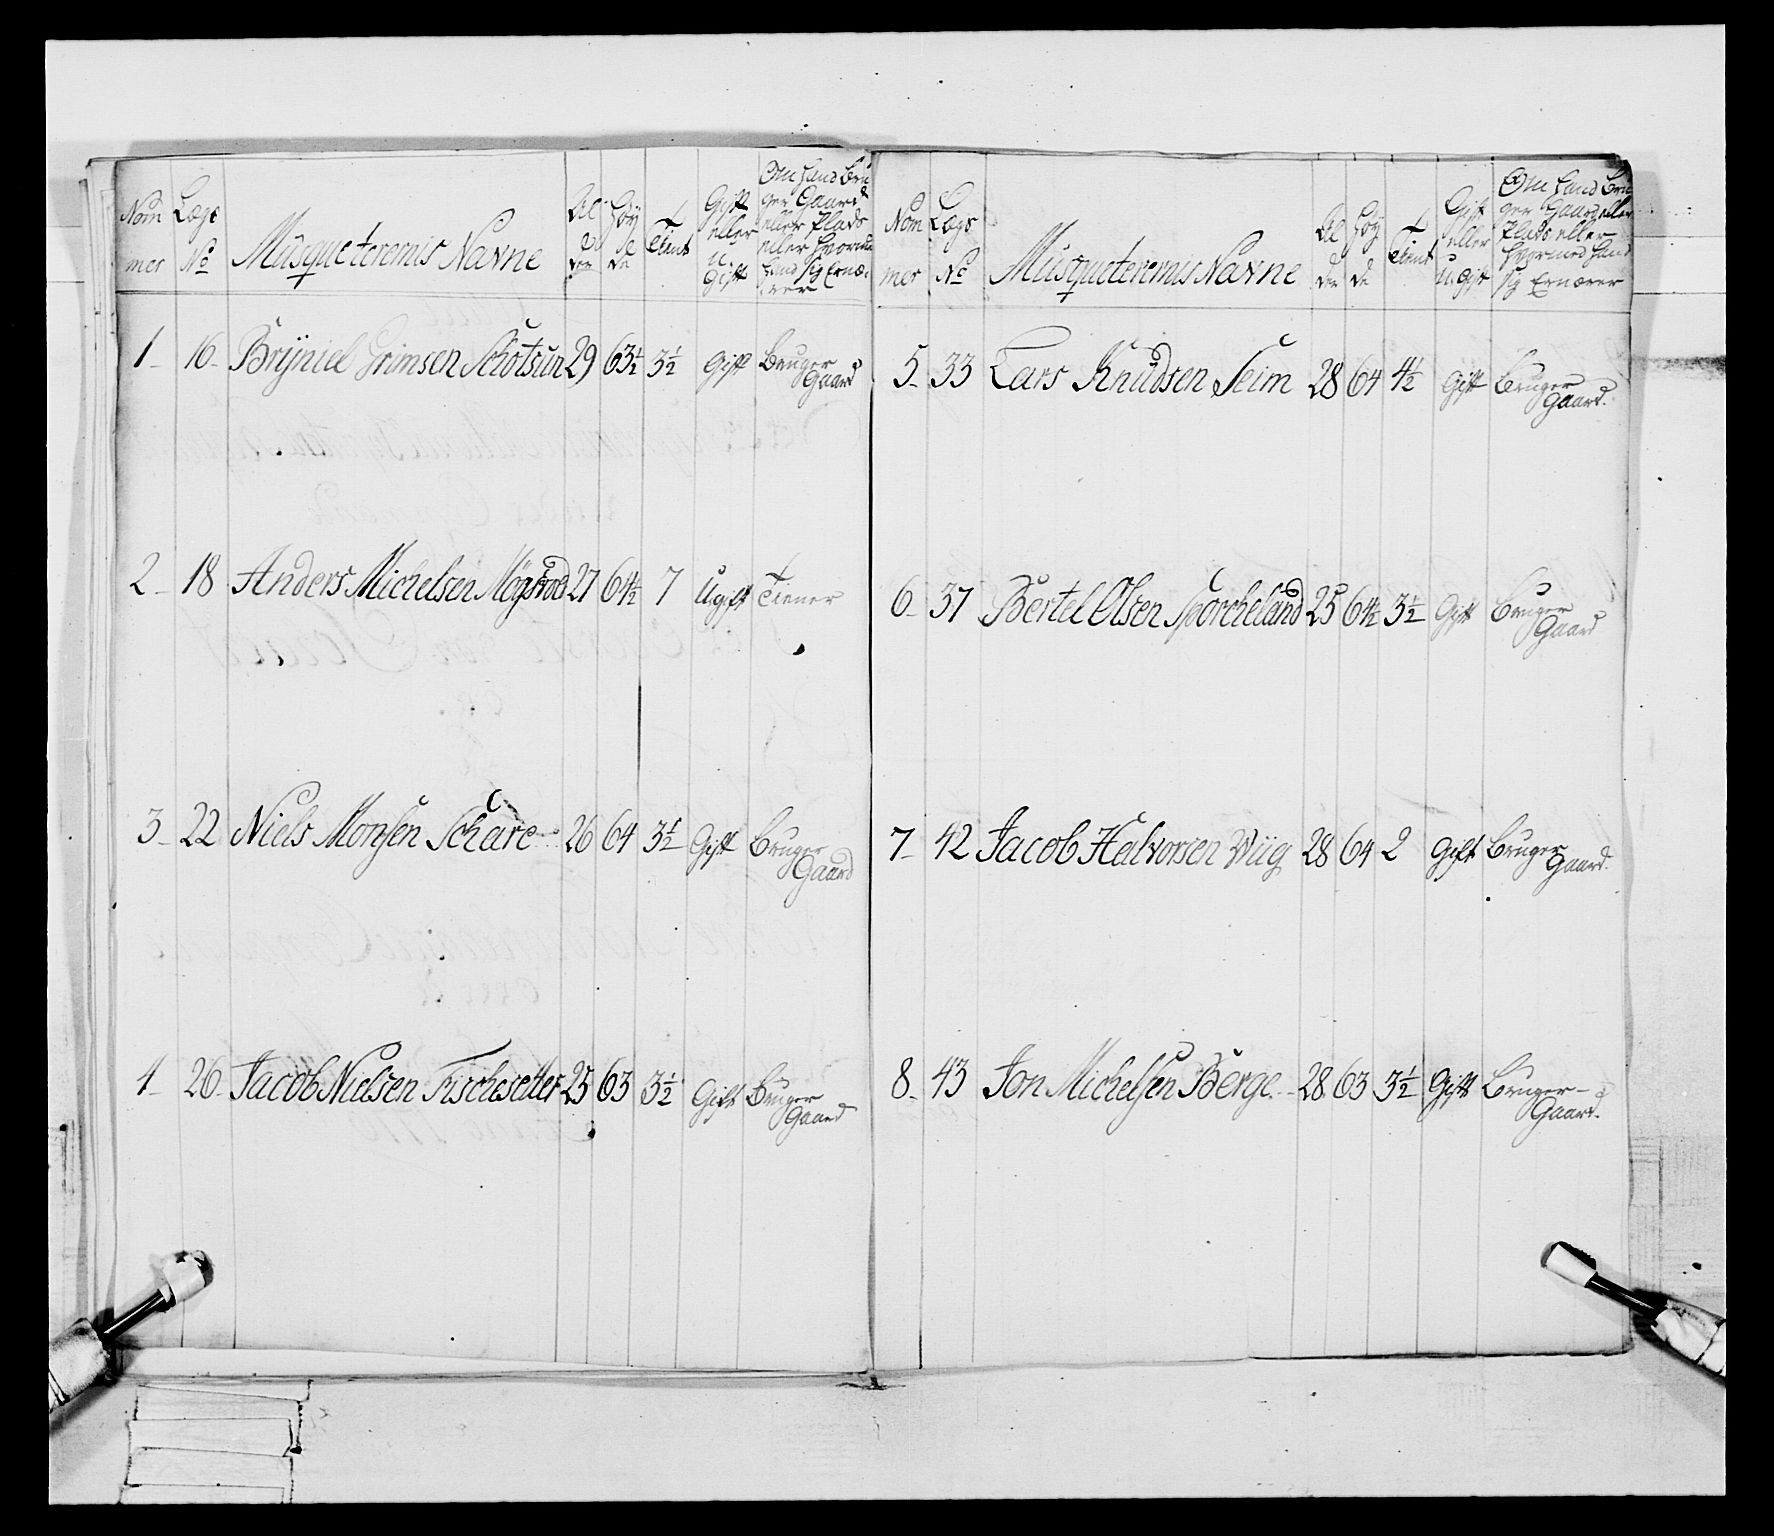 Nom mer | Lægs No | Musqueterernis Navne | Al der | Høy de | Tient | Gift eller u. Gift | Om hand Bru ger Gaard eller Plads eller hvormed hand sig Ernæ rer
1 - 16 - Brÿniel Grimsen Schotsun 29 63½ 3½ Gift Bruger Gaard
2 - 18 Anders Michelsen 27 64½ 7 Ugift Tiener
3 - 22 Niels Monsen Schare 26 64 3½ Gift Bruger Gaard
4 - 26 Jacob Nielsen Fischesetter 25 63 3½ Gift Bruger Gaard
Nom mer | Lægs No | Musqueterernis Navne | Al der | Høy de | Tient | Gift eller u. Gift | Om hand Bru ger Gaard eller Plads eller hvormed hand sig Ernærer
5 - 33 Lars Knudsen Seim 28 64 4½ Gift Bruger Gaard.
6 - 37 Bertel Olsen Sporcheland 25 64½ 3½ Gift Bruger Gaard
7 - 42 Jacob Halvorsen Wiig 28 64 2 Gift Bruger Gaard.
8 - 43 Jon Michelsen Berge - 28 63 3½ Gift Bruger - Gaard.